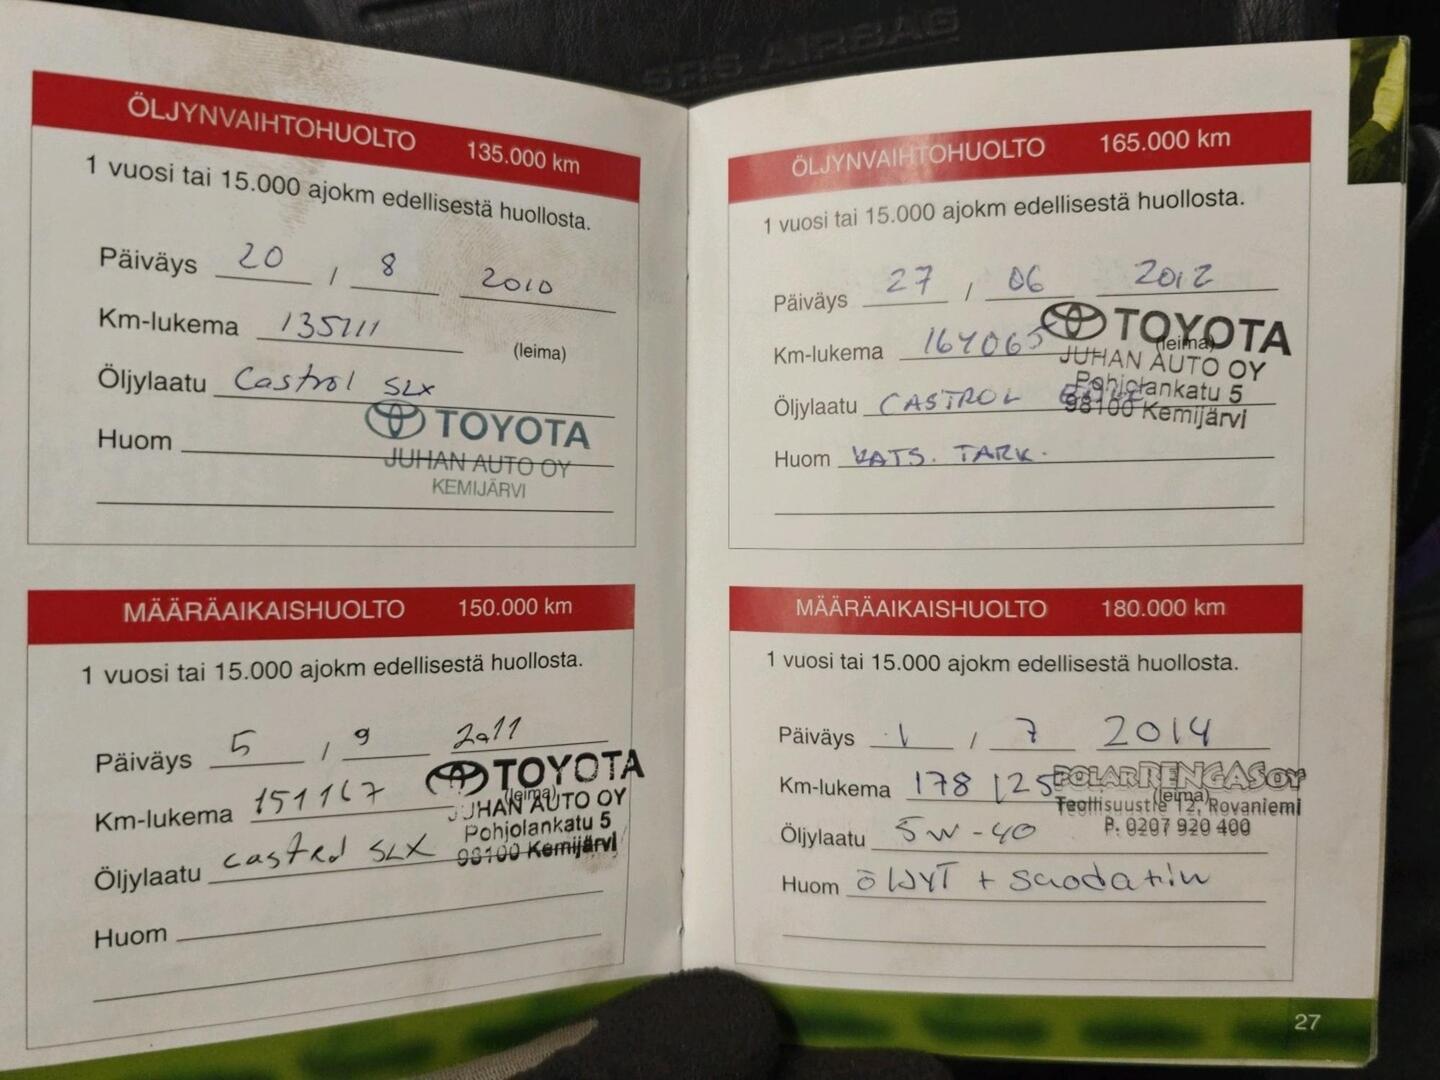 SRS AIRBAG
ÖLJYNVAIHTOHUOLTO 135.000 km
1 vuosi tai 15.000 ajokm edellisestä huollosta.
Päiväys 20 / 8 2010
Km-lukema 135111
(leima)
Öljylaatu Castrol SLX
TOYOTA
Huom
JUHAN AUTO OY
KEMIJÄRVI
MÄÄRÄAIKAISHUOLTO 150.000 km
1 vuosi tai 15.000 ajokm edellisestä huollosta.
Päiväys 5 / 9 2011
TOYOTA
Km-lukema 151167
(leima)
JUHAN AUTO OY
Pohjolankatu 5
Öljylaatu castrol SLX
98100 Kemijärvi
Huom
ÖLJYNVAIHTOHUOLTO 165.000 km
1 vuosi tai 15.000 ajokm edellisestä huollosta.
Päiväys 27 / 06 2012
TOYOTA
Km-lukema 164065
(leima)
JUHAN AUTO OY
Pohjolankatu 5
Öljylaatu CASTROL
98100 Kemijärvi
Huom KATS. TARK.
MÄÄRÄAIKAISHUOLTO 180.000 km
1 vuosi tai 15.000 ajokm edellisestä huollosta.
Päiväys 1 / 7 2014
Km-lukema 178125
POLAR RENGAS OY
(leima)
Teollisuustie 12, Rovaniemi
P. 0207 920 400
Öljylaatu 5W-40
Huom ÖLJYT + suodatin
27